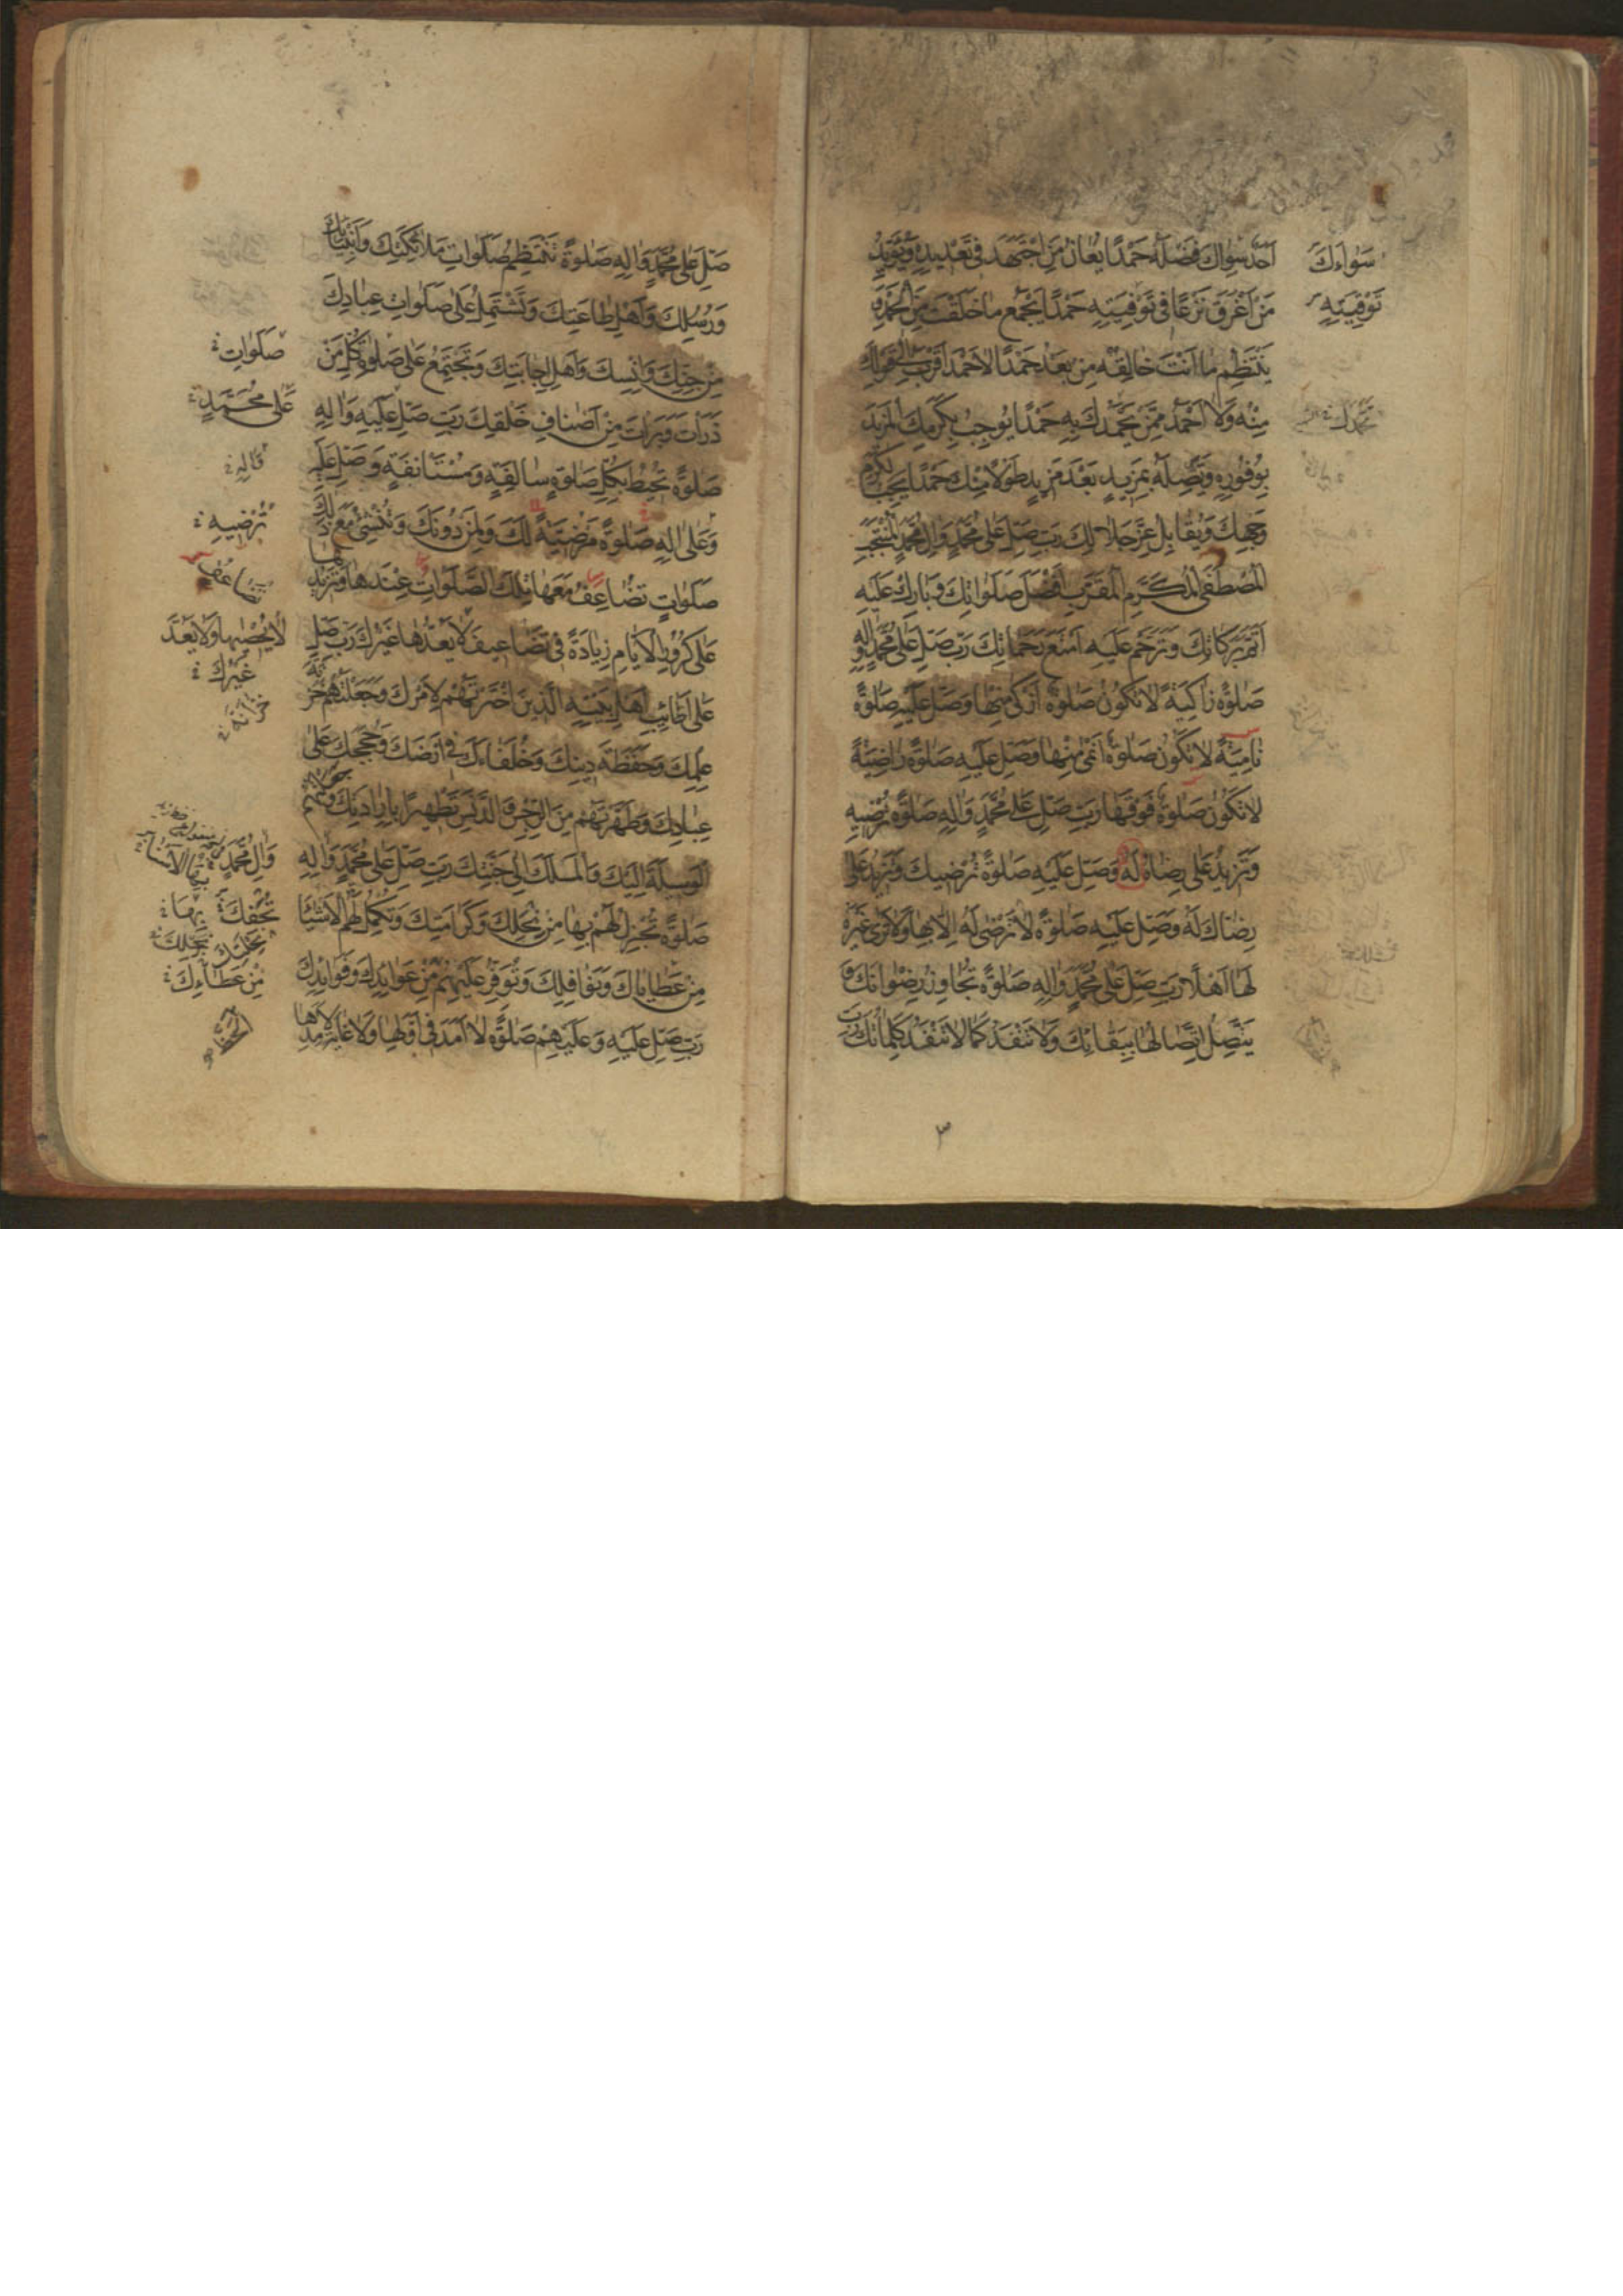 اَحَدٌ سِوَاكَ فَضْلَهُ حَمْدًا يُعَانُ مَنِ اجْتَهَدَ فِى تَعْدِيدِهِ وَيُؤَيَّدُ
مَنْ اَغْرَقَ نَزْعًا فِى تَوْفِيَتِهِ حَمْدًا يَجْمَعُ مَا خَلَقْتَ مِنَ الْحَمْدِ وَ
يَنْتَظِمُ مَا اَنْتَ خَالِقُهُ مِنْ بَعْدُ حَمْدًا لَا حَمْدَ اَقْرَبُ اِلٰى قَوْلِكَ
مِنْهُ وَلَا اَحْمَدَ مِمَّنْ يَحْمَدُكَ بِهِ حَمْدًا يُوجِبُ بِكَرَمِكَ الْمَزِيدَ
بِوُفُورِهِ وَتَصِلُهُ بِمَزِيدٍ بَعْدَ مَزِيدٍ طَوْلًا مِنْكَ حَمْدًا يَجِبُ لِكَرَمِ
وَجْهِكَ وَيُقَابِلُ عِزَّ جَلَالِكَ رَبِّ صَلِّ عَلٰى مُحَمَّدٍ وَاٰلِ مُحَمَّدٍ الْمُنْتَجَبِ
الْمُصْطَفَى الْمُكَرَّمِ الْمُقَرَّبِ اَفْضَلَ صَلَوَاتِكَ وَبَارِكْ عَلَيْهِ
اَتَمَّ بَرَكَاتِكَ وَتَرَحَّمْ عَلَيْهِ اَمْتَعَ رَحَمَاتِكَ رَبِّ صَلِّ عَلٰى مُحَمَّدٍ وَاٰلِهِ
صَلٰوةً زَاكِيَةً لَا تَكُونُ صَلٰوةٌ اَزْكٰى مِنْهَا وَصَلِّ عَلَيْهِ صَلٰوةً
نَامِيَةً لَا تَكُونُ صَلٰوةٌ اَنْمٰى مِنْهَا وَصَلِّ عَلَيْهِ صَلٰوةً رَاضِيَةً
لَا تَكُونُ صَلٰوةٌ فَوْقَهَا رَبِّ صَلِّ عَلٰى مُحَمَّدٍ وَاٰلِهِ صَلٰوةً تُرْضِيهِ
وَتَزِيدُ عَلٰى رِضَاهُ لَهُ وَصَلِّ عَلَيْهِ صَلٰوةً تُرْضِيكَ وَتَزِيدُ عَلٰى
رِضَاكَ لَهُ وَصَلِّ عَلَيْهِ صَلٰوةً لَا تَرْضٰى لَهُ اِلَّا بِهَا وَلَا تَرٰى غَيْرَهُ
لَهَا اَهْلًا رَبِّ صَلِّ عَلٰى مُحَمَّدٍ وَاٰلِهِ صَلٰوةً تُجَاوِزُ رِضْوَانَكَ وَ
يَتَّصِلُ اتِّصَالُهَا بِبَقَائِكَ وَلَا تَنْفَدُ كَمَا لَا تَنْفَدُ كَلِمَاتُكَ رَبِّ
سَوَاءَكَ
تَوْفِيَتِهِ
٣
صَلِّ عَلٰى مُحَمَّدٍ وَاٰلِهِ صَلٰوةً تَنْتَظِمُ صَلَوَاتِ مَلَائِكَتِكَ وَاَنْبِيَائِكَ
وَرُسُلِكَ وَاَهْلِ طَاعَتِكَ وَتَشْتَمِلُ عَلٰى صَلَوَاتِ عِبَادِكَ
مِنْ جِنِّكَ وَاِنْسِكَ وَاَهْلِ اِجَابَتِكَ وَتَجْتَمِعُ عَلٰى صَلٰوةِ كُلِّ مَنْ
ذَرَأْتَ وَبَرَأْتَ مِنْ اَصْنَافِ خَلْقِكَ رَبِّ صَلِّ عَلَيْهِ وَاٰلِهِ
صَلٰوةً تُحِيطُ بِكُلِّ صَلٰوةٍ سَالِفَةٍ وَمُسْتَأْنَفَةٍ وَصَلِّ عَلَيْهِ
وَعَلٰى اٰلِهِ صَلٰوةً مَرْضِيَّةً لَكَ وَلِمَنْ دُونَكَ وَتُنْشِئُ مَعَ ذٰلِكَ
صَلَوَاتٍ تُضَاعِفُ مَعَهَا تِلْكَ الصَّلَوَاتِ عِنْدَهَا وَتَزِيدُهَا
عَلٰى كُرُورِ الْاَيَّامِ زِيَادَةً فِى تَضَاعِيفَ لَا يَعُدُّهَا غَيْرُكَ رَبِّ صَلِّ
عَلٰى اَطَائِبِ اَهْلِ بَيْتِهِ الَّذِينَ اخْتَرْتَهُمْ لِاَمْرِكَ وَجَعَلْتَهُمْ خَزَنَةَ
عِلْمِكَ وَحَفَظَةَ دِينِكَ وَخُلَفَاءَكَ فِى اَرْضِكَ وَحُجَجَكَ عَلٰى
عِبَادِكَ وَطَهَّرْتَهُمْ مِنَ الرِّجْسِ وَالدَّنَسِ تَطْهِيرًا بِاِرَادَتِكَ وَجَعَلْتَهُمُ
الْوَسِيلَةَ اِلَيْكَ وَالْمَسْلَكَ اِلٰى جَنَّتِكَ رَبِّ صَلِّ عَلٰى مُحَمَّدٍ وَاٰلِهِ
صَلٰوةً تُجْزِلُ لَهُمْ بِهَا مِنْ نِحَلِكَ وَكَرَامَتِكَ وَتُكْمِلُ لَهُمُ الْاَشْيَاءَ
مِنْ عَطَايَاكَ وَنَوَافِلِكَ وَتُوَفِّرُ عَلَيْهِمْ مِنْ عَوَائِدِكَ وَفَوَائِدِكَ
رَبِّ صَلِّ عَلَيْهِ وَعَلَيْهِمْ صَلٰوةً لَا اَمَدَ فِى اَوَّلِهَا وَلَا غَايَةَ لِاَمَدِهَا
صَلَوَاتِ
عَلٰى مُحَمَّدٍ
وَاٰلِهِ
تُرْضِيهِ
تُضَاعِفُ
لَا يُحْصِيهَا وَلَا يَعُدُّ
غَيْرُكَ
خَزَانَةَ
وَاٰلِ مُحَمَّدٍ
تُحَفِكَ بِهَا
نُحْلِكَ
مِنْ عَطَاءِكَ